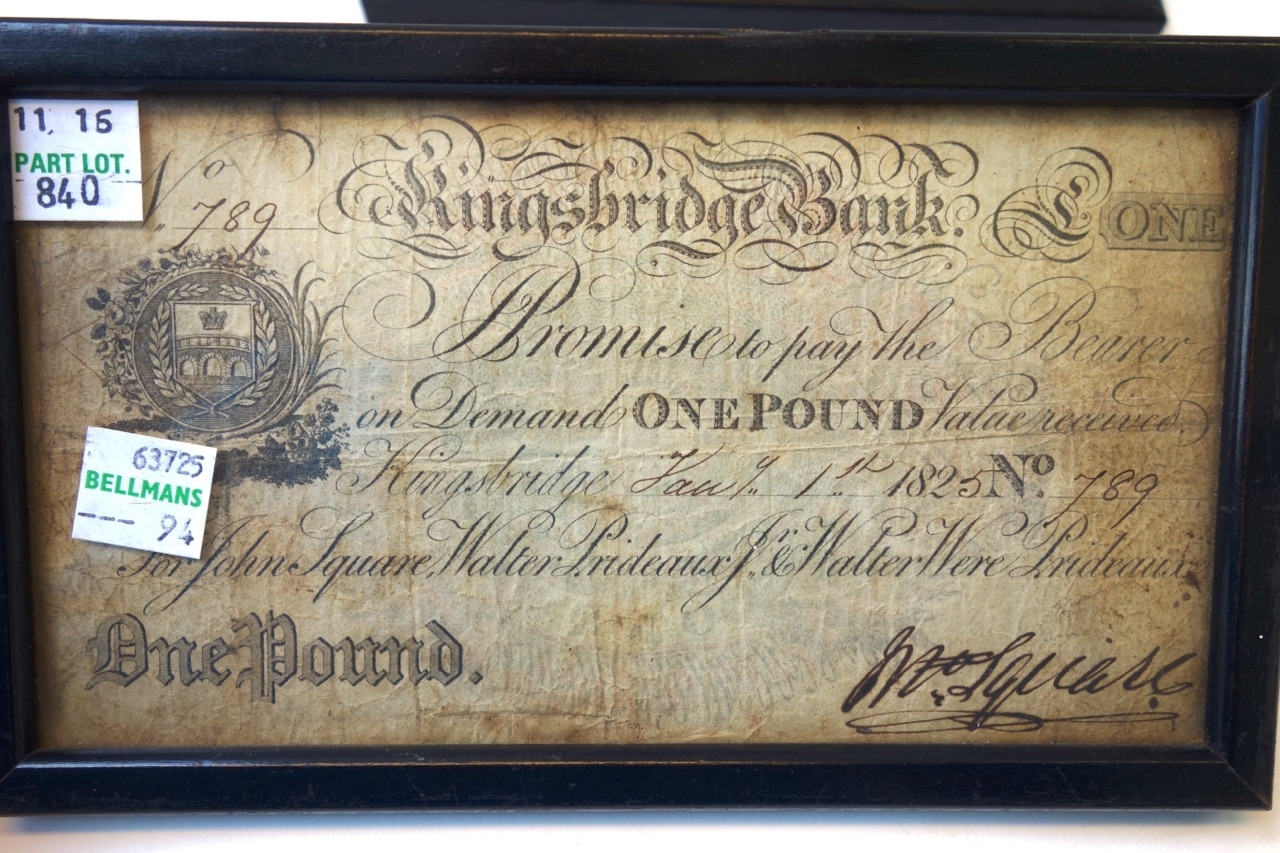 11, 16
PART LOT.
840
No 789
Kingsbridge Bank. £ ONE
I Promise to pay the Bearer
on Demand ONE POUND Value received.
Kingsbridge Jany. 1st 1825 No. 789
63725
BELLMANS
--- 94
For John Square, Walter Prideaux Jr. & Walter Were Prideaux.
One Pound.
Jno Square